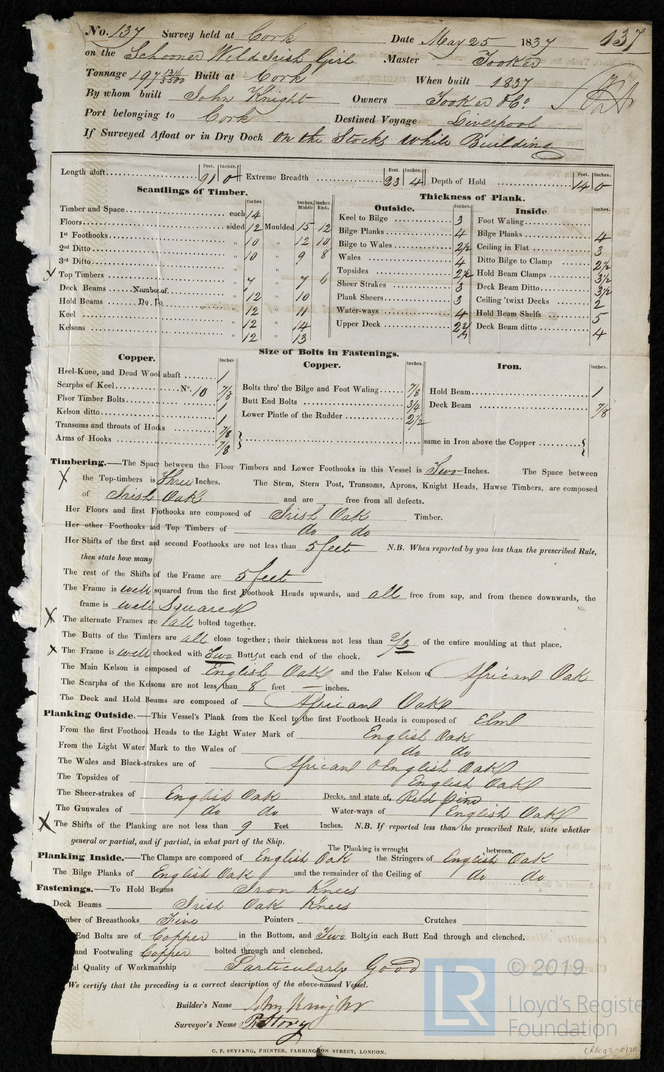 No. 137 Survey held at Cork Date May 25 1837 137
on the Schooner Wild Irish Girl Master Tooker
Tonnage 197 Built at Cork When built 1837
By whom built John Knight Owners Tooker & Co
Port belonging to Cork Destined Voyage Liverpool
If Surveyed Afloat or in Dry Dock On the Stocks while Building
Feet. Inches. Feet. Inches. Feet. Inches.
Length aloft 91 0 Extreme Breadth 23 4 Depth of Hold 14 0
Scantlings of Timber.
Inches Inches Middle Inches End.
Timber and Space each 14
Floors sided 12 Moulded 15 12
1st Foothooks " 10 " 12 10
2nd Ditto " 10 " 9 8
3rd Ditto " "
Top Timbers " 7 " 7 6
Deck Beams Number of " 12 " 10
Hold Beams Do. Do. " 12 " 11
Keel " 12 " 14
Kelsons " 12 " 13
Thickness of Plank.
Outside. Inches
Keel to Bilge 3
Bilge Planks 4
Bilge to Wales 2½
Wales 4
Topsides 2½
Sheer Strakes 3
Plank Sheers 3
Water-ways 4
Upper Deck 2¾
Inside. Inches.
Foot Waling
Bilge Planks 4
Ceiling in Flat 3
Ditto Bilge to Clamp 2½
Hold Beam Clamps 3½
Deck Beam Ditto 3½
Ceiling 'twixt Decks 2
Hold Beam Shelfs 5
Deck Beam ditto 4
Size of Bolts in Fastenings.
Copper. Inches
Heel-Knee, and Dead Wood abaft 1
Scarphs of Keel No. 10 7/8
Floor Timber Bolts 1
Kelson ditto 1
Transoms and throats of Hooks 7/8
Arms of Hooks 7/8
Copper. Inches.
Bolts thro' the Bilge and Foot Waling 7/8
Butt End Bolts 3/4
Lower Pintle of the Rudder 2½
Iron. Inches.
Hold Beam 1
Deck Beam 7/8
same in Iron above the Copper
Timbering.—The Space between the Floor Timbers and Lower Foothooks in this Vessel is Two Inches. The Space between
X the Top-timbers is Three Inches. The Stem, Stern Post, Transoms, Aprons, Knight Heads, Hawse Timbers, are composed
of Irish Oak and are free from all defects.
Her Floors and first Foothooks are composed of Irish Oak Timber.
Her other Foothooks and Top Timbers of do do
Her Shifts of the first and second Foothooks are not less than 5 feet N.B. When reported by you less than the prescribed Rule,
then state how many
The rest of the Shifts of the Frame are 5 feet
The Frame is well squared from the first Foothook Heads upwards, and all free from sap, and from thence downwards, the
frame is well Squared
X The alternate Frames are all bolted together.
The Butts of the Timbers are all close together; their thickness not less than 2/3 of the entire moulding at that place.
X The Frame is well chocked with Two Butts at each end of the chock.
The Main Kelson is composed of English Oak and the False Kelson of African Oak
The Scarphs of the Kelsons are not less than 8 feet — inches.
The Deck and Hold Beams are composed of African Oak
Planking Outside.—This Vessel's Plank from the Keel to the first Foothook Heads is composed of Elm
From the first Foothook Heads to the Light Water Mark of English Oak
From the Light Water Mark to the Wales of do do
The Wales and Black-strakes are of African & English Oak
The Topsides of English Oak
The Sheer-strakes of English Oak Decks, and state of, Red Pine
The Gunwales of do do Water-ways of English Oak
X The Shifts of the Planking are not less than 9 Feet Inches. N.B. If reported less than the prescribed Rule, state whether
general or partial, and if partial, in what part of the Ship.
The Planking is wrought between.
Planking Inside.—The Clamps are composed of English Oak the Stringers of English Oak
The Bilge Planks of English Oak and the remainder of the Ceiling of do do
Fastenings.—To Hold Beams Iron Knees
Deck Beams Irish Oak Knees
mber of Breasthooks Five Pointers Crutches
End Bolts are of Copper in the Bottom, and Two Bolts in each Butt End through and clenched.
and Footwaling Copper bolted through and clenched.
al Quality of Workmanship Particularly Good
We certify that the preceding is a correct description of the above-named Vessel.
Builder's Name John Knight
Surveyor's Name R Story
C. F. SEYFANG, PRINTER, FARRINGDON STREET, LONDON.
LR © 2019
Lloyd's Register
Foundation